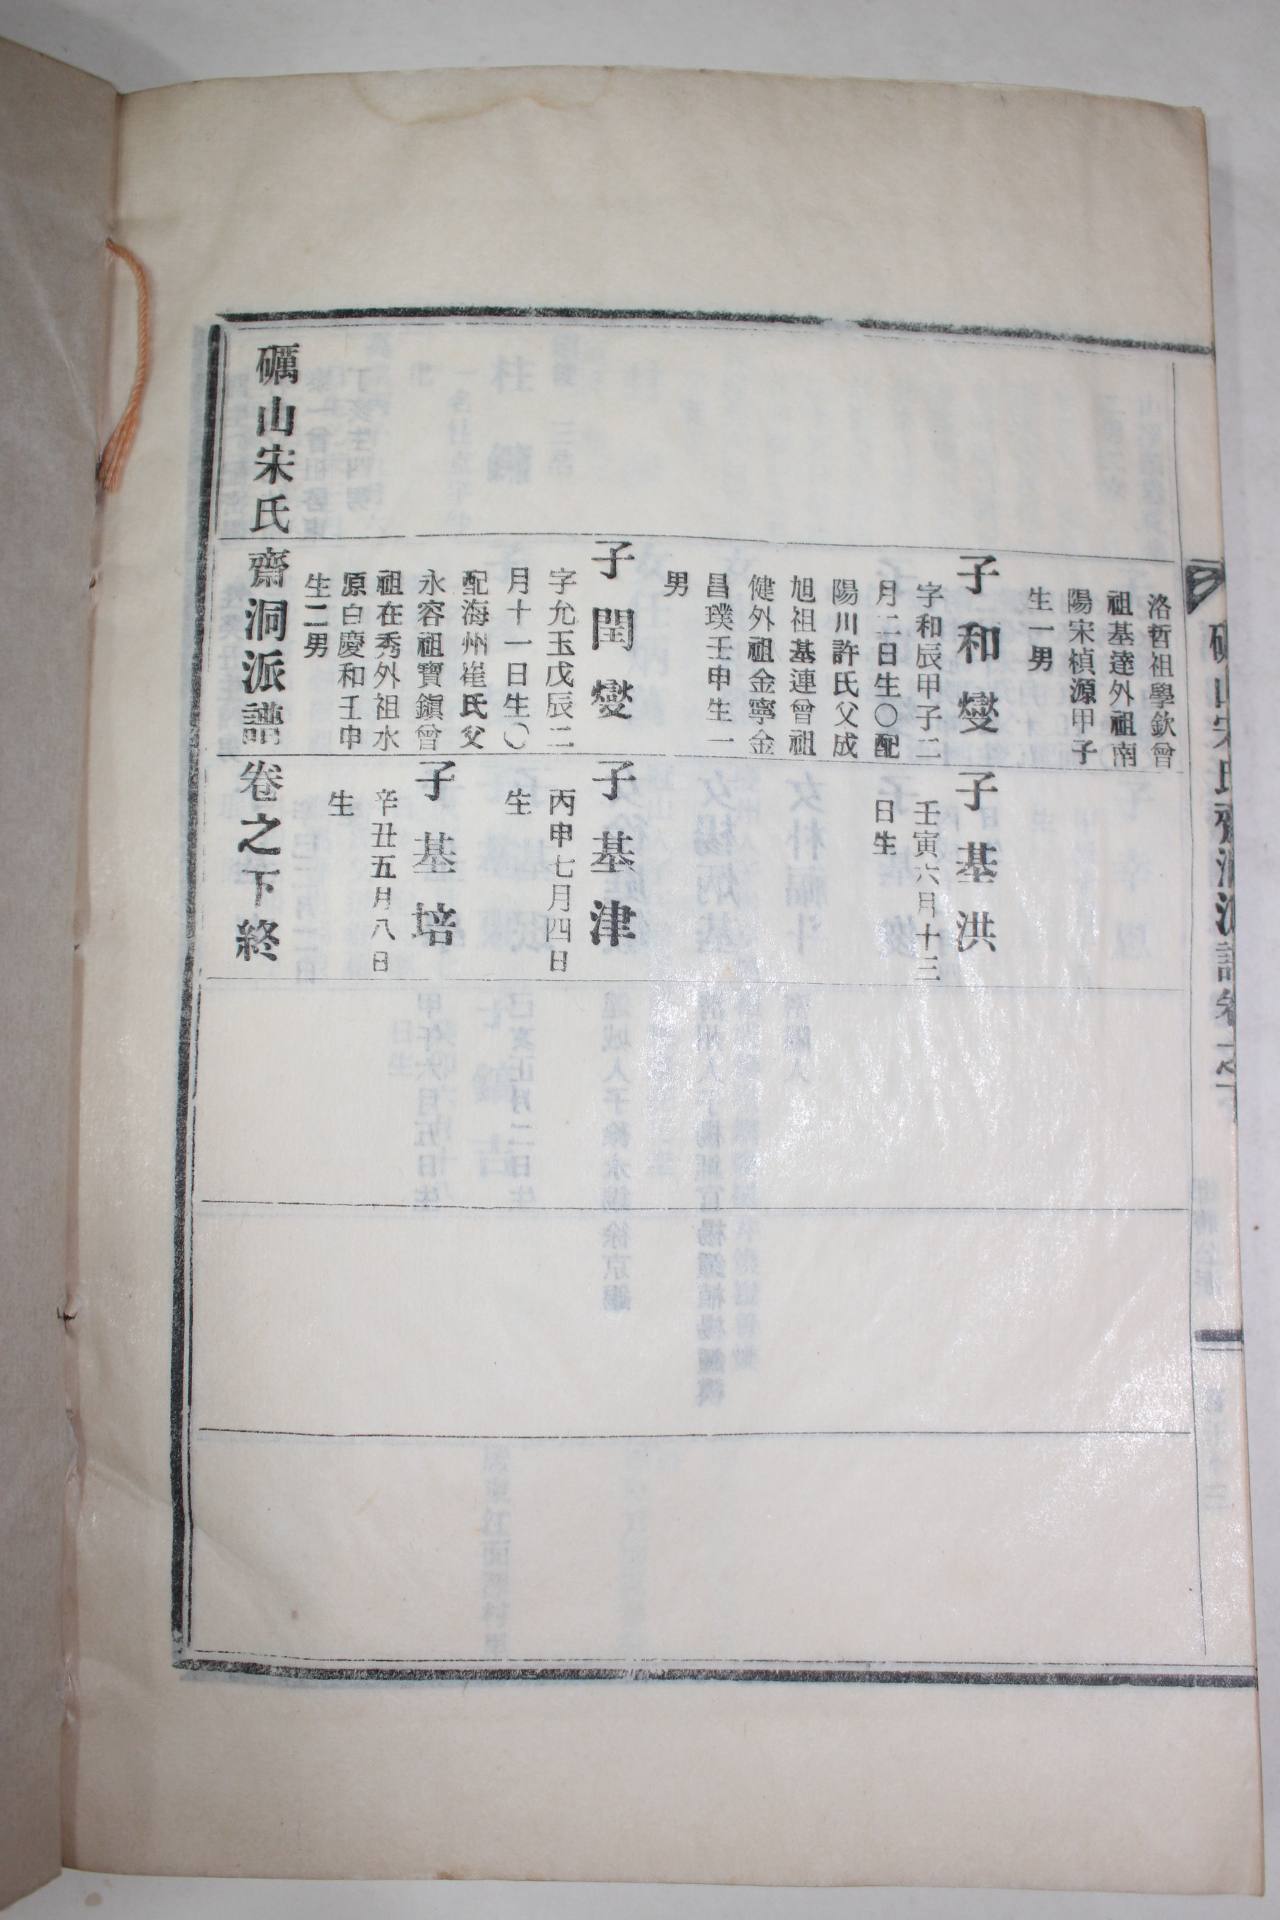 洛哲祖學欽曾
祖基達外祖南
陽宋楨源甲子
生一男
子和燮
字和辰甲子二
月二日生○配
陽川許氏父成
旭祖基連曾祖
健外祖金寧金
昌璞壬申生一
男
子閏燮
字允玉戊辰二
月十一日生○
配海州崔氏父
永容祖寶鎭曾
祖在秀外祖水
原白慶和壬申
生二男
子基洪
壬寅六月十三
日生
子基津
丙申七月四日
生
子基培
辛丑五月八日
生
礪山宋氏齋洞派譜卷之下終
礪山宋氏齋洞派譜卷之下